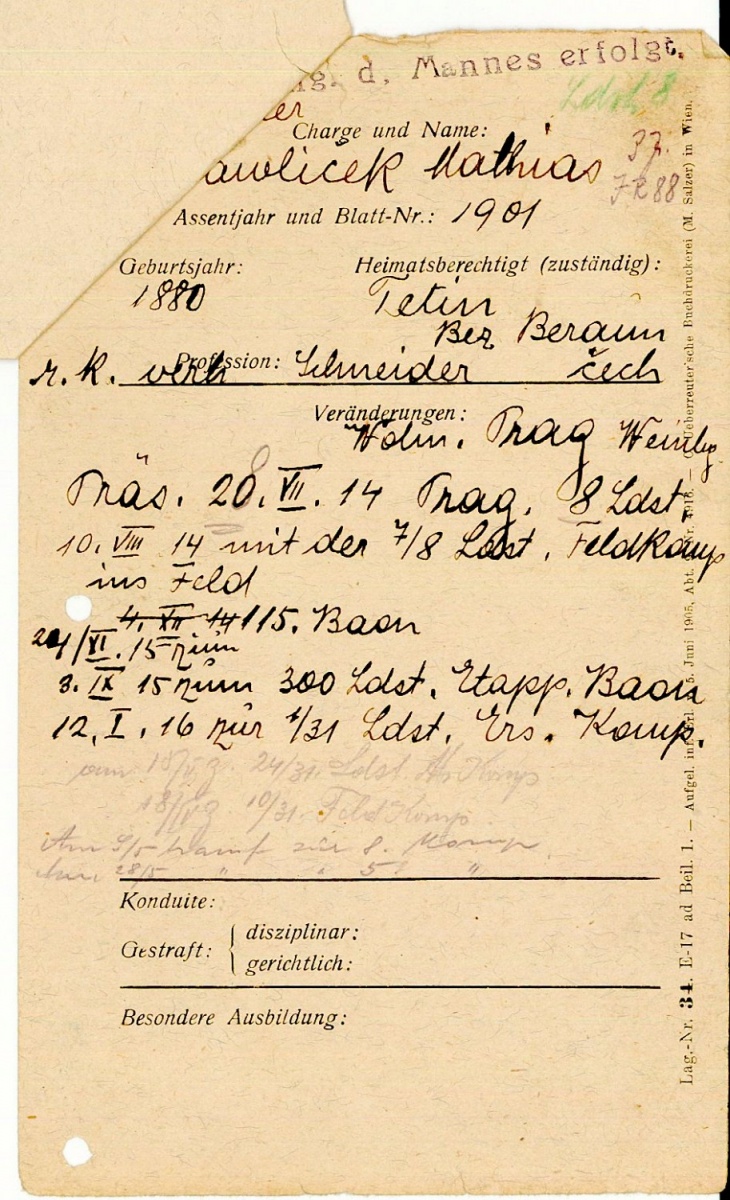 d. Mannes erfolgt.
Ldst 8
er
Charge und Name:
awliček Mathias
37.
JR 88
Assentjahr und Blatt-Nr.: 1901
Geburtsjahr: Heimatsberechtigt (zuständig):
1880 Tetin
Bez Beraun
Profession:
r. k. verh Schneider čech
Veränderungen:
Wohn. Prag Weinbg
Präs. 28. VII. 14 Prag. 8 Ldst.
10. VIII 14 mit der 7/8 Ldst. Feldkomp
ins Feld
4. XII 14 115. Baon
24/VI. 15 zum
3. IX 15 zum 300 Ldst. Etapp. Baon
12. I. 16 zur 1/31 Ldst. Ers. Komp.
am 18/V 24/31. Ldst. Komp
10/31. Feld Komp.
Am 9/5 zur 8. Komp.
28/5 " " 5. "
Konduite:
Gestraft: { disziplinar:
gerichtlich:
Besondere Ausbildung:
Lag.-Nr. 34. E-17 ad Beil. 1. — Aufgel. 5. Juni 1905, Abt. — Ueberreuter'sche Buchdruckerei (M. Salzer) in Wien.